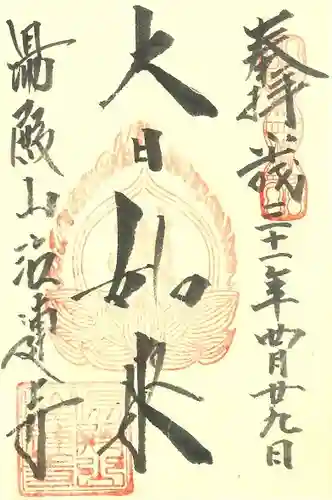 奉拝 二十一年四月廿九日
大日如来
湯殿山注連寺